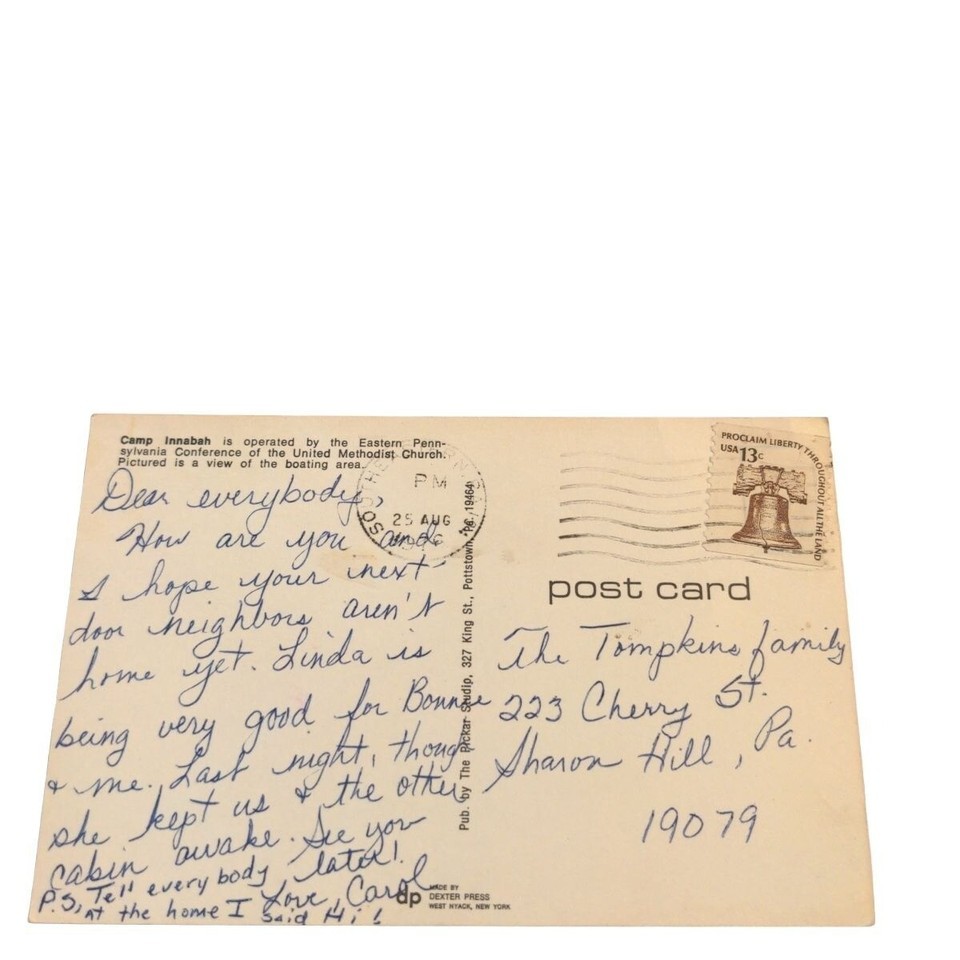 Camp Innabah is operated by the Eastern Penn-
sylvania Conference of the United Methodist Church.
Pictured is a view of the boating area.
Dear everybody,
How are you and
I hope your next
door neighbors aren't
home yet. Linda is
being very good for Bonnie
& me. Last night, though
she kept us & the other
cabin awake. See you
later!
Love, Carol
P.S. Tell everybody
at the home I said Hi!
PM
25 AUG
Pub. by The Pickar Studio, 327 King St., Pottstown, Pa. 19464
PROCLAIM LIBERTY THROUGHOUT ALL THE LAND
USA 13c
post card
The Tompkins family
223 Cherry St.
Sharon Hill, Pa.
19079
dp
MADE BY
DEXTER PRESS
WEST NYACK, NEW YORK